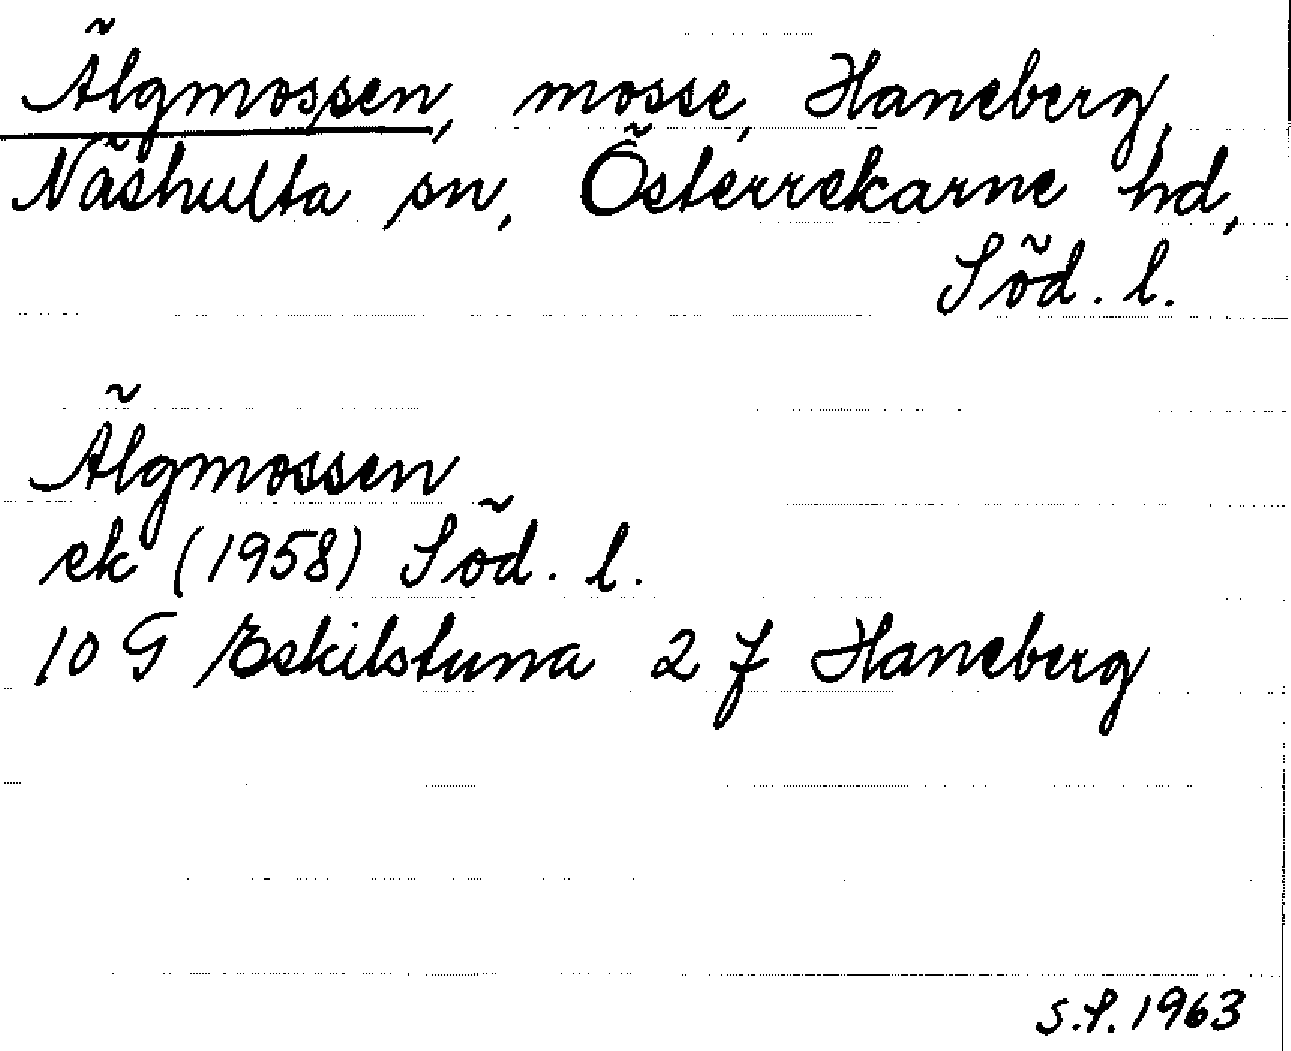 Älgmossen, mosse, Haneberg,
Näshulta sn, Österrekarne hd,
Söd. l.
Älgmossen
ek (1958) Söd. l.
10 G Eskilstuna 2 f Haneberg
S.S. 1963